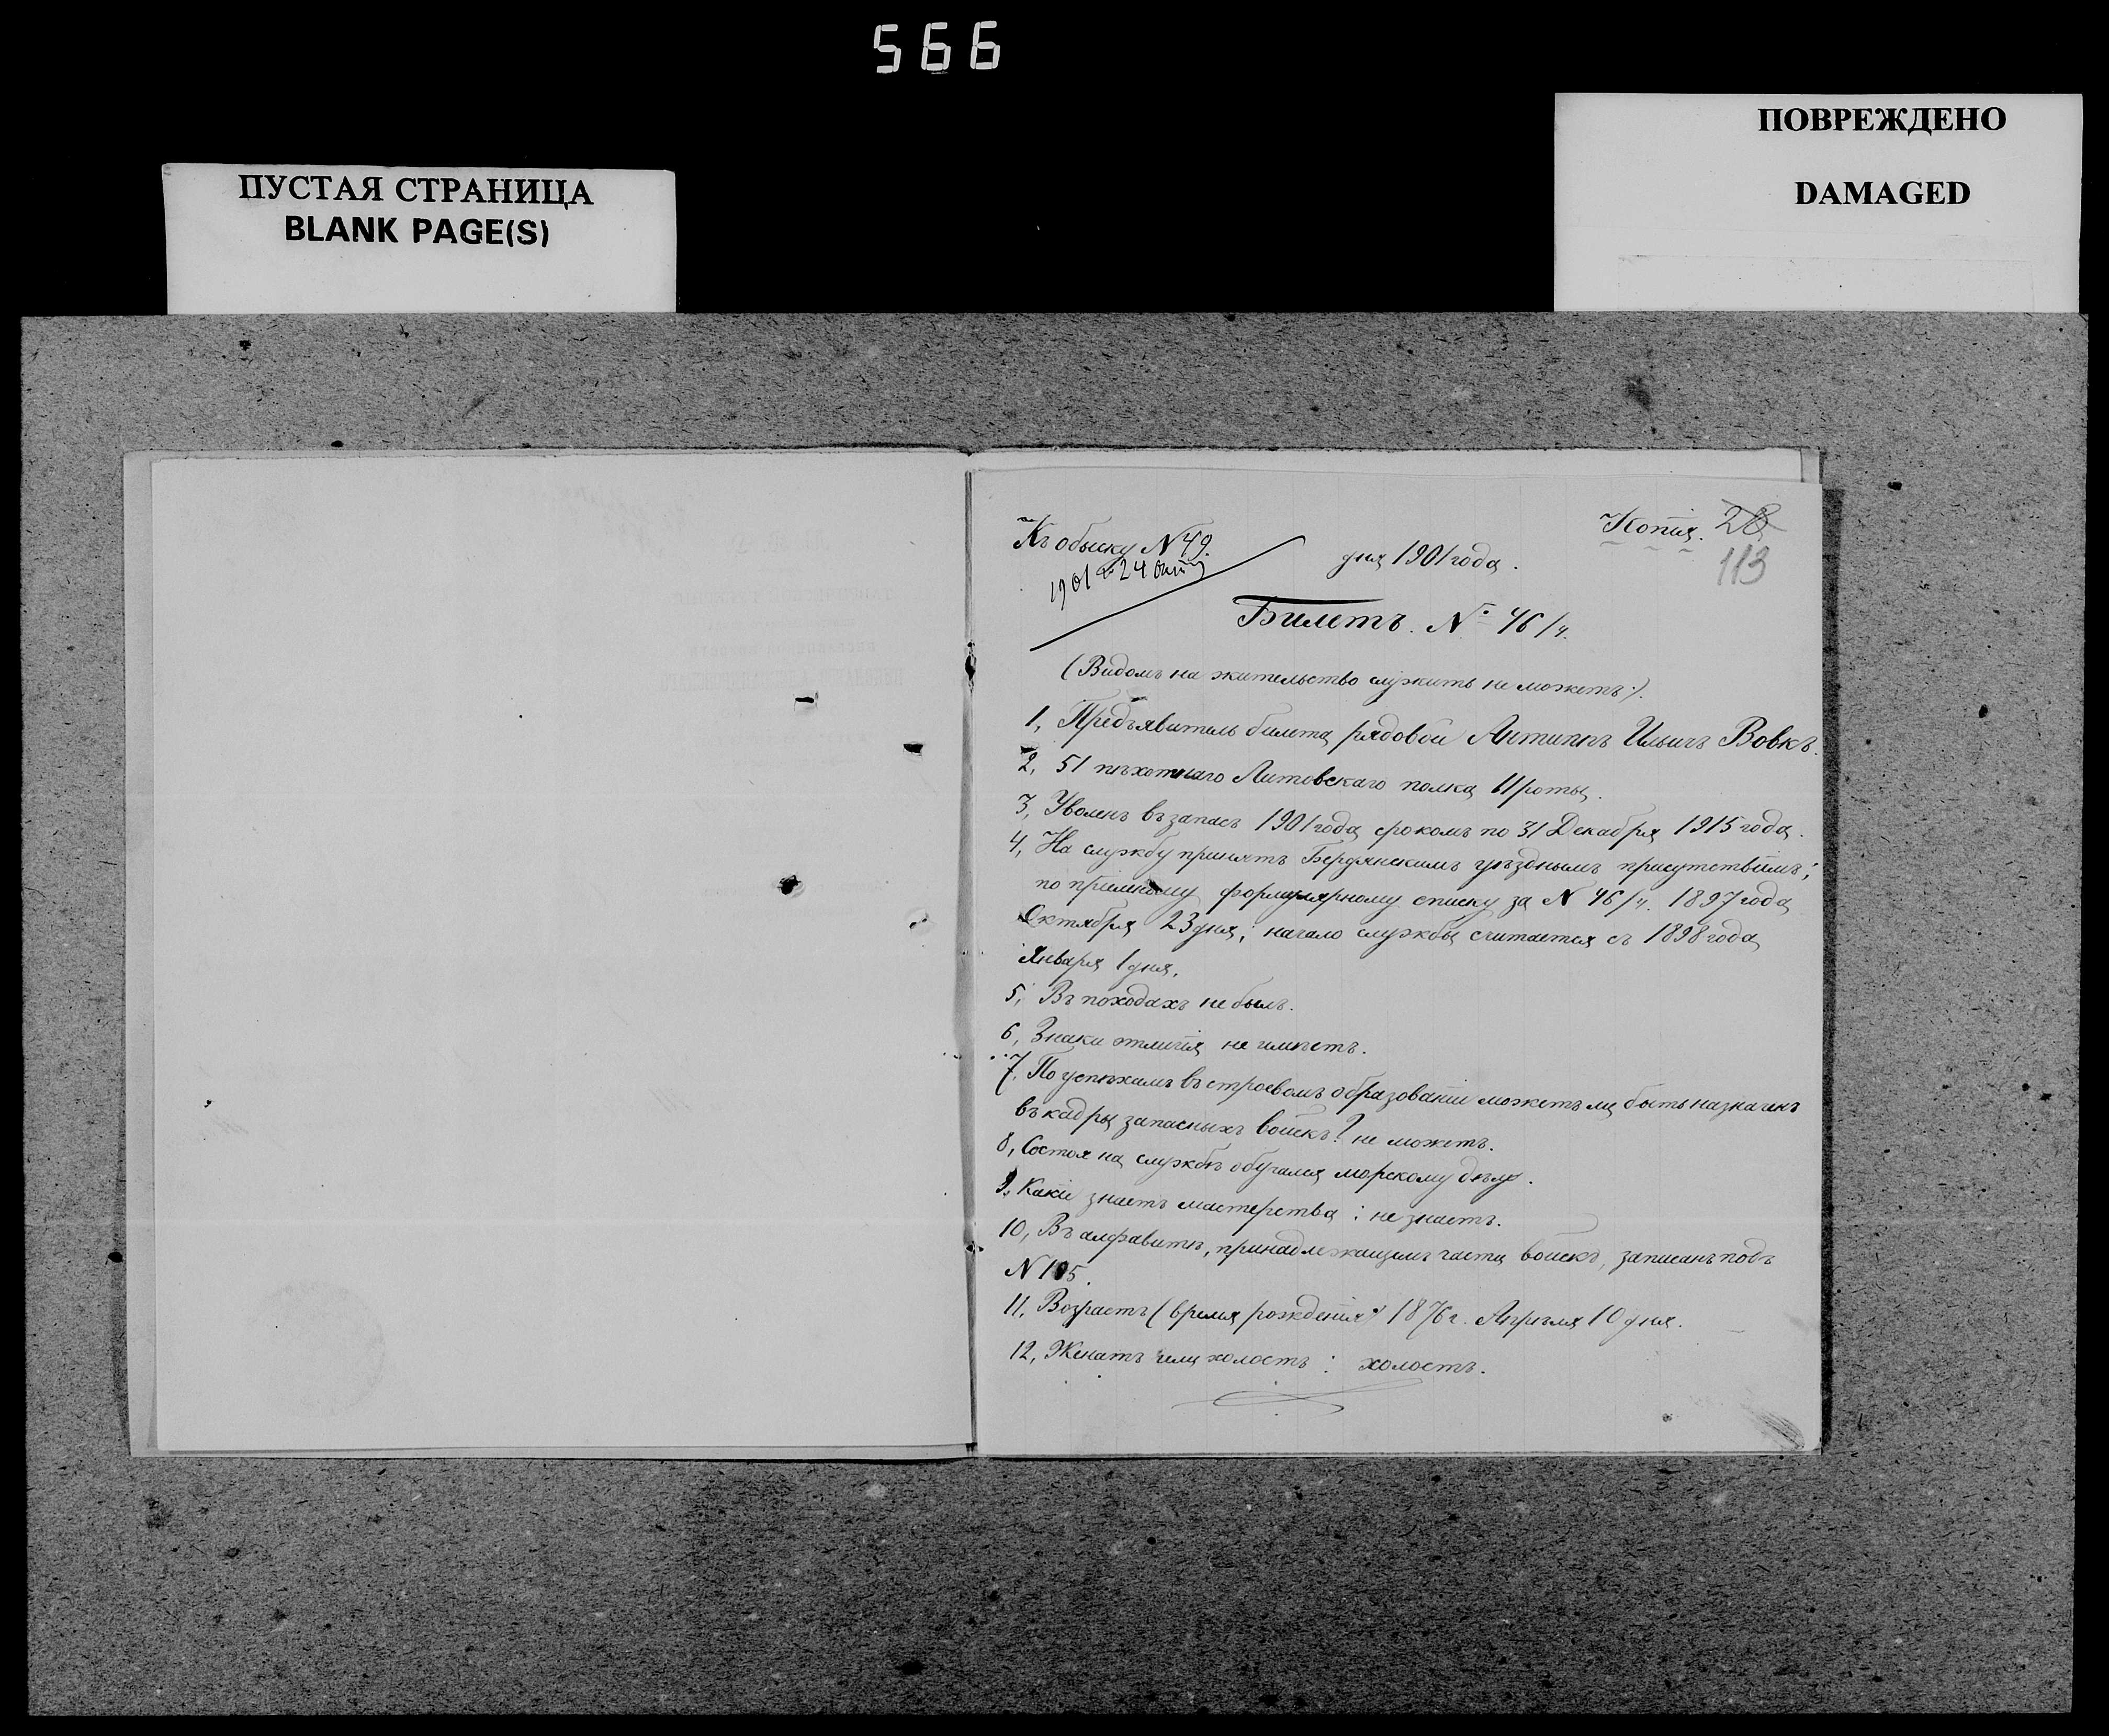 566
ПОВРЕЖДЕНО
DAMAGED
ПУСТАЯ СТРАНИЦА
BLANK PAGE(S)
Копія. 28
113
Къ обыску N 49.
1901 г. 24 окт
дня 1901 года.
Билетъ. № 46/4.
(Видомъ на жительство служить не можетъ).
1, Предъявитель билета рядовой Антиппъ Ильичъ Вовкъ.
2, 51 пѣхотнаго Литовскаго полка 11 роты.
3, Уволенъ въ запасъ 1901 года срокомъ по 31 Декабря 1915 года.
4, На службу принятъ Бердянскимъ уѣзднымъ присутствіемъ;
по пріемному формулярному списку за N 46/4. 1897 года
Октября 23 дня; начало службы считается съ 1898 года
Января 1 дня.
5, Въ походахъ не былъ.
6, Знаки отличія не имѣетъ.
7, По успѣхамъ въ строевомъ образованіи можетъ ли быть назначенъ
въ кадры запасныхъ войскъ? не можетъ.
8, Состоя на службѣ обучался морскому дѣлу.
9, Какіе знаетъ мастерства: не знаетъ.
10, Въ алфавитѣ, принадлежащемъ части войскъ, записанъ подъ
N 105.
11, Возрастъ (время рожденія) 1876 г. Апрѣля 10 дня.
12, Женатъ или холостъ: холостъ.